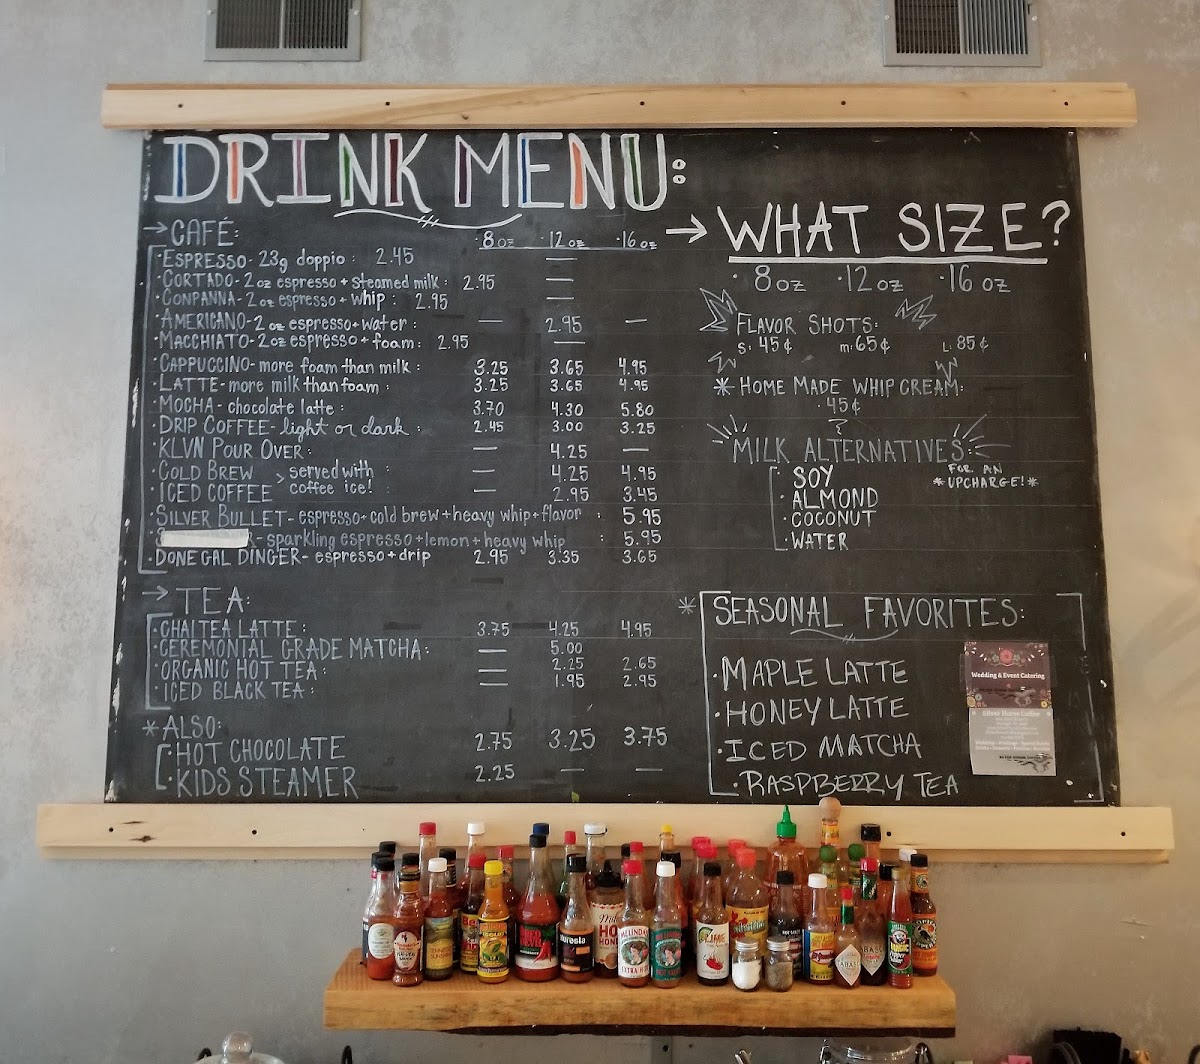 DRINK MENU:
→ CAFÉ: ·8oz ·12oz ·16oz
·ESPRESSO- 23g doppio : 2.45 —
·CORTADO- 2 oz espresso + steamed milk : 2.95 —
·CONPANNA- 2 oz espresso + whip : 2.95 —
·AMERICANO- 2 oz espresso + water : — 2.95 —
·MACCHIATO- 2 oz espresso + foam : 2.95 —
·CAPPUCCINO- more foam than milk : 3.25 3.65 4.95
·LATTE- more milk than foam : 3.25 3.65 4.95
·MOCHA- chocolate latte : 3.70 4.30 5.80
·DRIP COFFEE- light or dark : 2.45 3.00 3.25
·KLVN POUR OVER : — 4.25 —
·COLD BREW > served with : — 4.25 4.95
·ICED COFFEE coffee ice! : — 2.95 3.45
·SILVER BULLET- espresso + cold brew + heavy whip + flavor : 5.95
- sparkling espresso + lemon + heavy whip : 5.95
·DONEGAL DINGER- espresso + drip 2.95 3.35 3.65
→ TEA:
·CHAI TEA LATTE : 3.75 4.25 4.95
·CEREMONIAL GRADE MATCHA : — 5.00
·ORGANIC HOT TEA : — 2.25 2.65
·ICED BLACK TEA : — 1.95 2.95
*ALSO:
·HOT CHOCOLATE 2.75 3.25 3.75
·KIDS STEAMER 2.25 — —
→ WHAT SIZE?
·8oz ·12oz ·16oz
FLAVOR SHOTS:
S: 45¢ M: 65¢ L: 85¢
* HOME MADE WHIP CREAM:
·45¢
MILK ALTERNATIVES:
FOR AN
*UPCHARGE!*
·SOY
·ALMOND
·COCONUT
·WATER
* SEASONAL FAVORITES:
·MAPLE LATTE
·HONEY LATTE
·ICED MATCHA
·RASPBERRY TEA
Wedding & Event Catering
Silver Horse Coffee
MELINDA'S
EXTRA HOT
RED DEVIL
LIME
TABASCO